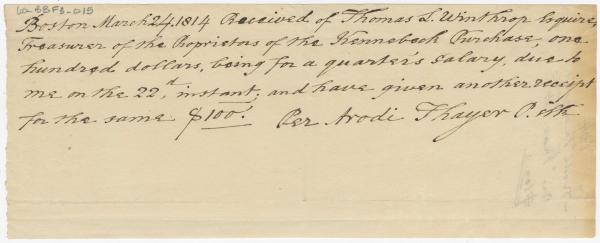 60-S8F3-015
Boston March 24. 1814 Received of Thomas L. Winthrop Esquire,
Treasurer of the Proprietors of the Kennebeck Purchase, one
hundred dollars, being for a quarter's salary, due to
me on the 22d instant; and have given another receipt
for the same $100. Per Arodi Thayer P. Clk